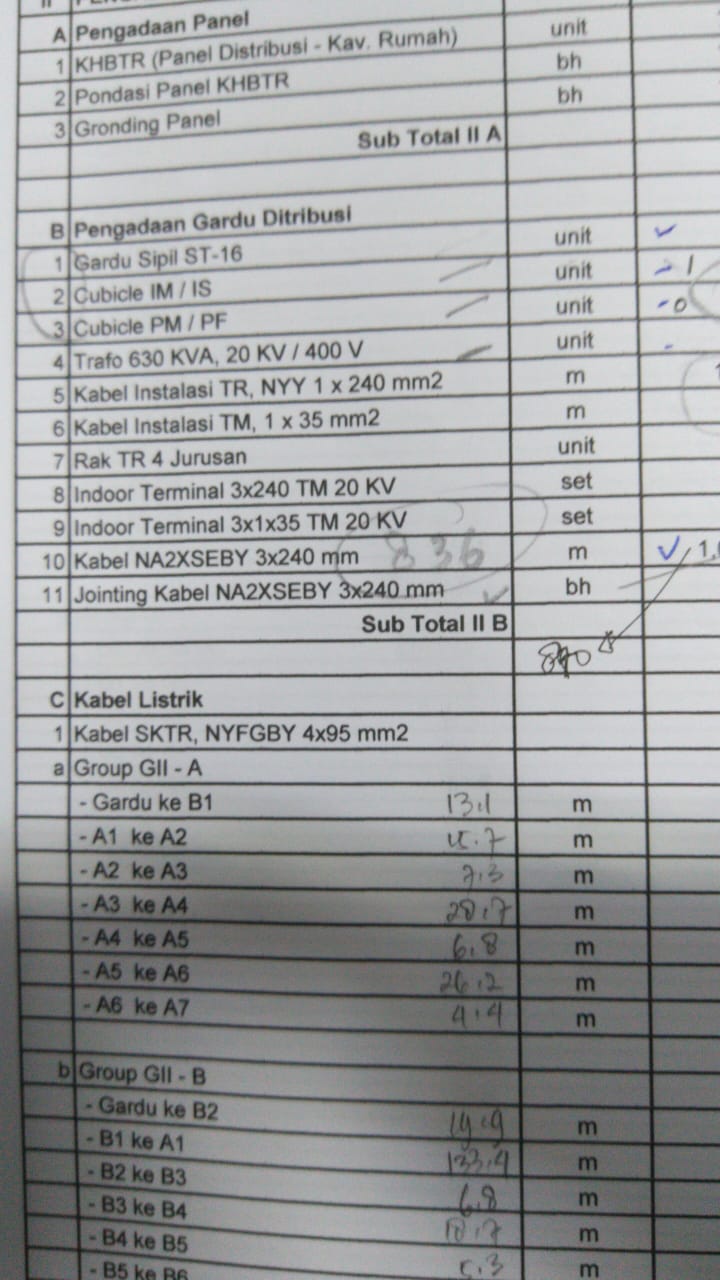 A Pengadaan Panel unit
1 KHBTR (Panel Distribusi - Kav. Rumah) bh
2 Pondasi Panel KHBTR bh
3 Gronding Panel
Sub Total II A
B Pengadaan Gardu Ditribusi
1 Gardu Sipil ST-16 unit
2 Cubicle IM / IS unit 1
3 Cubicle PM / PF unit 0
4 Trafo 630 KVA, 20 KV / 400 V unit
5 Kabel Instalasi TR, NYY 1 x 240 mm2 m
6 Kabel Instalasi TM, 1 x 35 mm2 m
7 Rak TR 4 Jurusan unit
8 Indoor Terminal 3x240 TM 20 KV set
9 Indoor Terminal 3x1x35 TM 20 KV set
10 Kabel NA2XSEBY 3x240 mm 836 m
11 Jointing Kabel NA2XSEBY 3x240 mm bh
Sub Total II B
C Kabel Listrik
1 Kabel SKTR, NYFGBY 4x95 mm2
a Group GII - A
- Gardu ke B1 13,1 m
- A1 ke A2 m
- A2 ke A3 7,3 m
- A3 ke A4 28,7 m
- A4 ke A5 6,8 m
- A5 ke A6 26,2 m
- A6 ke A7 4,4 m
b Group GII - B
- Gardu ke B2 m
- B1 ke A1 133,4 m
- B2 ke B3 6,8 m
- B3 ke B4 m
- B4 ke B5 m
- B5 ke B6